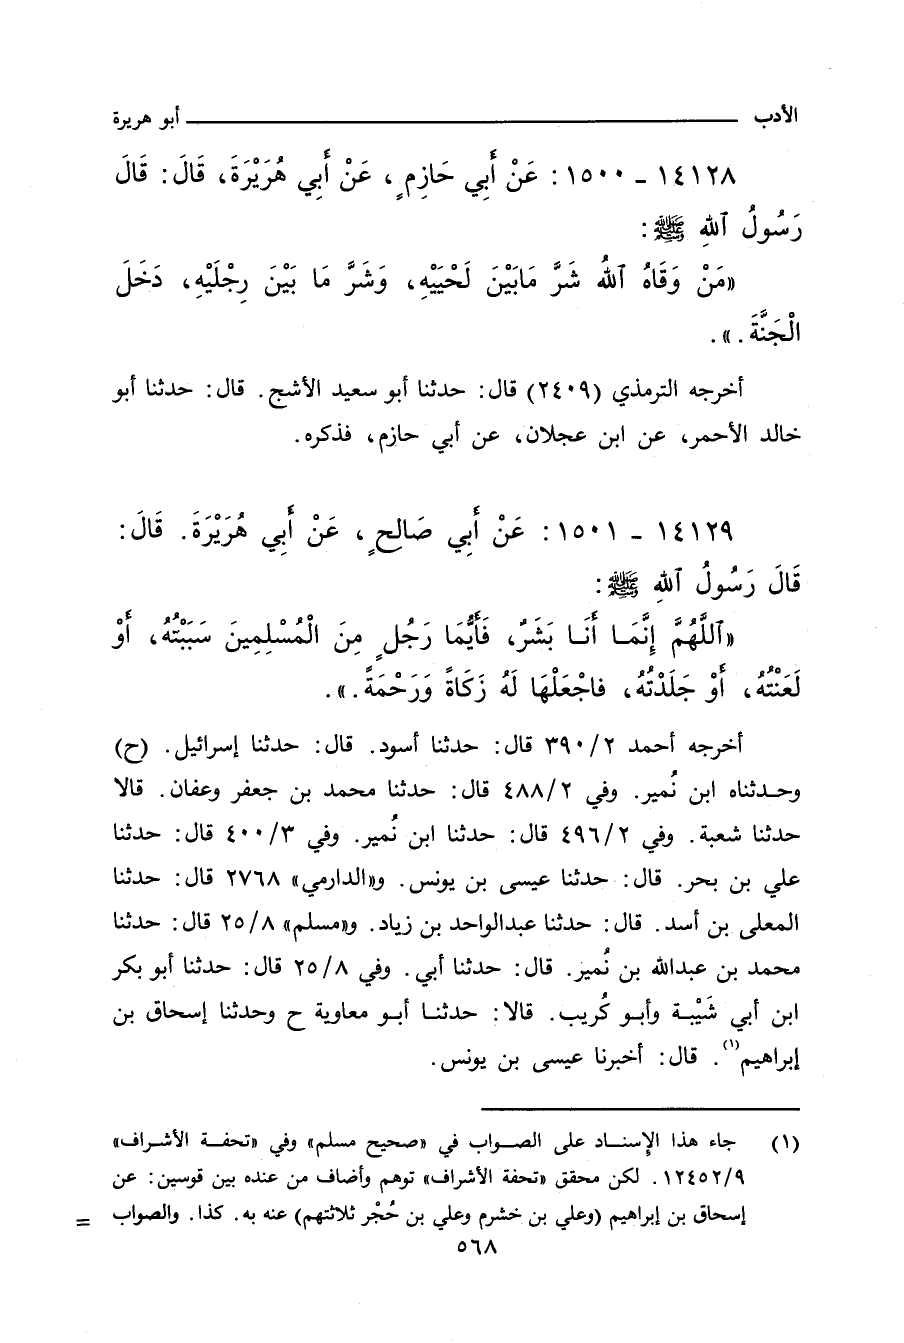 الأدب ـــــــ أبو هريرة
١٤١٢٨ ـ ١٥٠٠ : عَنْ أَبِي حَازِمٍ ، عَنْ أَبِي هُرَيْرَةَ، قَالَ: قَالَ
رَسُولُ ٱللهِ ﷺ :
«مَنْ وَقَاهُ ٱللهُ شَرَّ مَابَيْنَ لَحْيَيْهِ، وَشَرَّ مَا بَيْنَ رِجْلَيْهِ، دَخَلَ
الْجَنَّةَ . » .
أخرجه الترمذي (٢٤٠٩) قال: حدثنا أبو سعيد الأشج . قال: حدثنا أبو
خالد الأحمر، عن ابن عجلان، عن أبي حازم، فذكره.
١٤١٢٩ ـ ١٥٠١ : عَنْ أَبِي صَالِحٍ ، عَنْ أَبِي هُرَيْرَةَ . قَالَ:
قَالَ رَسُولُ ٱللهِ ﷺ :
«ٱللَّهُمَّ إِنَّمَا أَنَا بَشَرٌ، فَأَيُّمَا رَجُلٍ مِنَ الْمُسْلِمِينَ سَبَبْتُهُ، أَوْ
لَعَنْتُهُ، أَوْ جَلَدْتُهُ، فاجْعَلْهَا لَهُ زَكَاةً وَرَحْمَةً . » .
أخرجه أحمد ٢/ ٣٩٠ قال: حدثنا أسود. قال: حدثنا إسرائيل. (ح)
وحدثناه ابن نُمير. وفي ٢/ ٤٨٨ قال: حدثنا محمد بن جعفر وعفان. قالا
حدثنا شعبة. وفي ٢/ ٤٩٦ قال: حدثنا ابن نُمير. وفي ٣/ ٤٠٠ قال: حدثنا
علي بن بحر. قال: حدثنا عيسى بن يونس. و«الدارمي» ٢٧٦٨ قال: حدثنا
المعلى بن أسد. قال: حدثنا عبدالواحد بن زياد. و«مسلم» ٨/ ٢٥ قال: حدثنا
محمد بن عبدالله بن نُمير. قال: حدثنا أبي. وفي ٨/ ٢٥ قال: حدثنا أبو بكر
ابن أبي شَيْبة وأبو كُريب. قالا: حدثنا أبو معاوية ح وحدثنا إسحاق بن
إبراهيم(١). قال: أخبرنا عيسى بن يونس.
(١) جاء هذا الإسناد على الصواب في «صحيح مسلم» وفي «تحفة الأشراف»
٩/ ١٢٤٥٢. لكن محقق «تحفة الأشراف» توهم وأضاف من عنده بين قوسين: عن
إسحاق بن إبراهيم (وعلي بن خشرم وعلي بن حُجْر ثلاثتهم) عنه به. كذا. والصواب =
٥٦٨